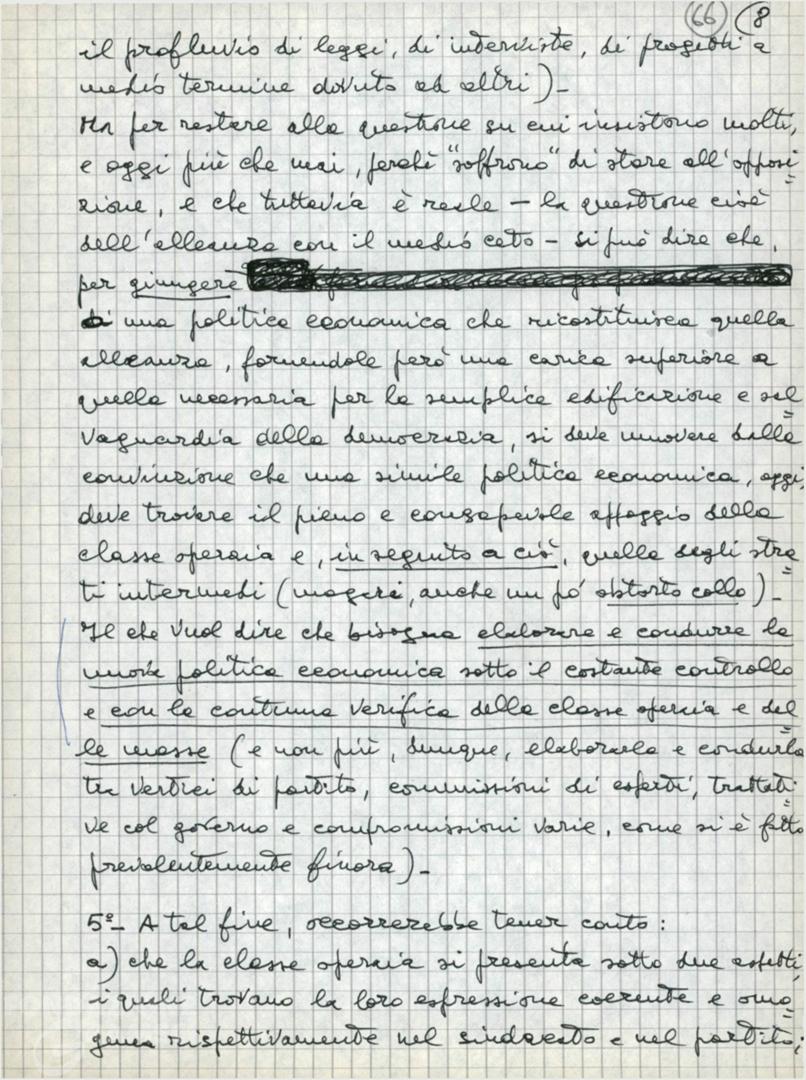 66 8
il profluvio di leggi, di interviste, di progetti a
medio termine dovuto ad altri)-
Ma per restare alla questione su cui insistono molti,
e oggi più che mai, perché "soffrono" di stare all'opposi=
zione, e che tuttavia è reale - la questione cioè
dell'alleanza con il medio ceto - si può dire che,
per giungere
di una politica economica che ricostituisca quella
alleanza, fornendole però una carica superiore a
quella necessaria per la semplice edificazione e sal=
vaguardia della democrazia, si deve muovere dalla
convinzione che una simile politica economica, oggi,
deve trovare il pieno e consapevole appoggio della
classe operaia e, in seguito a ciò, quello degli stra=
ti intermedi (magari, anche un pò obtorto collo)-
Il che vuol dire che bisogna elaborare e condurre la
nuova politica economica sotto il costante controllo
e con la continua verifica della classe operaia e del=
le masse (e non più, dunque, elaborarla e condurla
tra vertici di partito, commissioni di esperti, trattati=
ve col governo e compromissioni varie, come si è fatto
prevalentemente finora)-
5°- A tal fine, occorrerebbe tener conto:
a) che la classe operaia si presenta sotto due aspetti,
i quali trovano la loro espressione coerente e omo=
genea rispettivamente nel sindacato e nel partito;